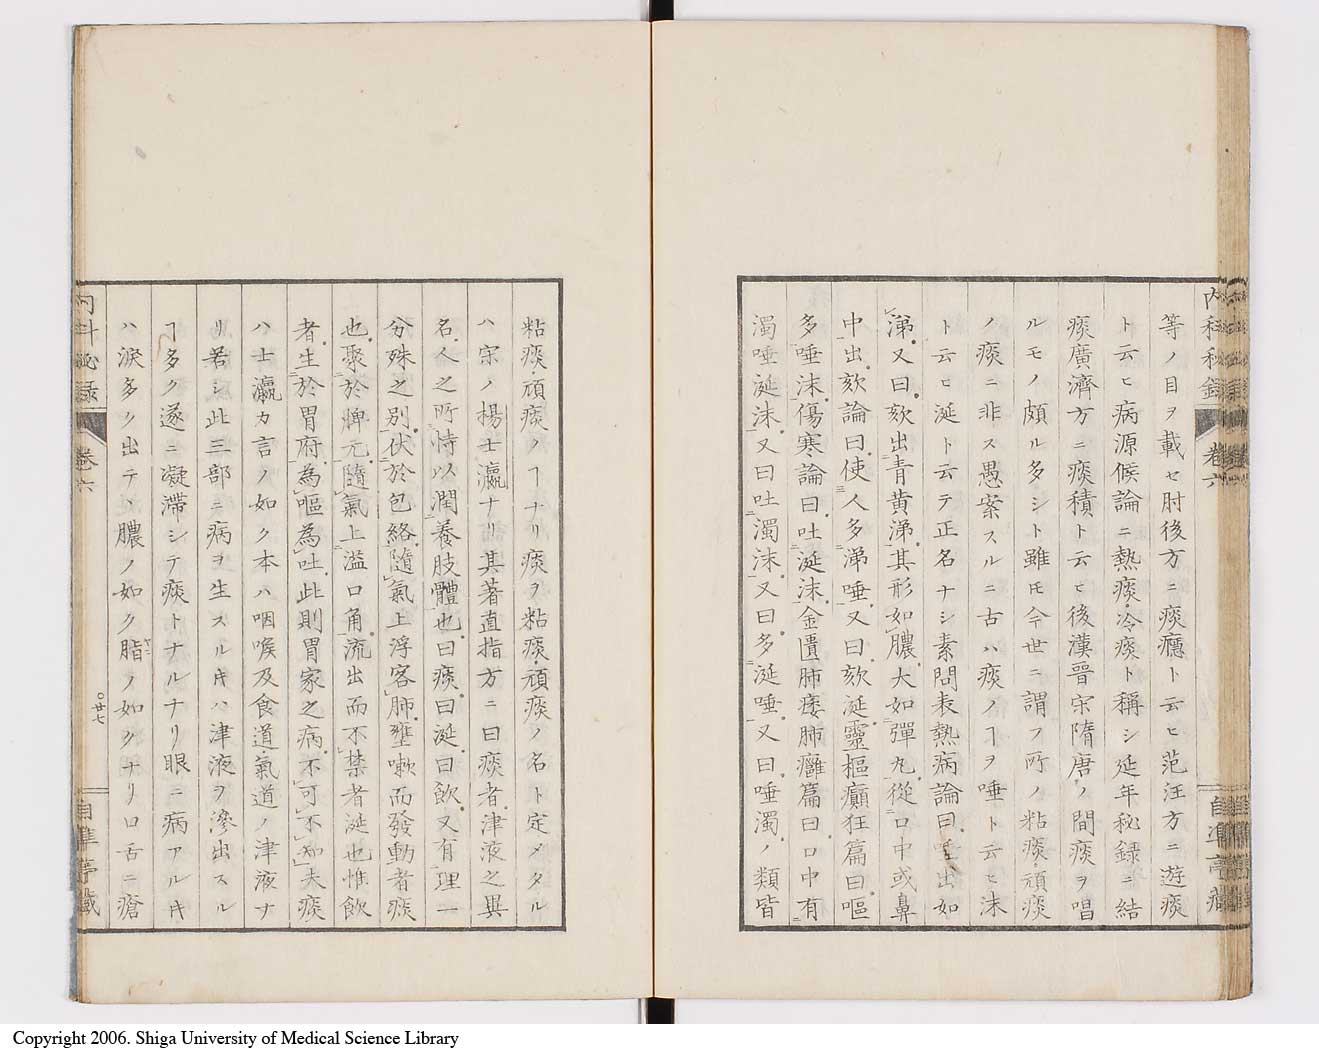 内科秘録 卷六
等ノ目ヲ載セ肘後方ニ痰癊ト云ヒ范汪方ニ遊痰
ト云ヒ病源候論ニ熱痰冷痰ト稱シ延年秘録ニ結
痰廣濟方ニ痰積ト云ヒ後漢晉宋隋唐ノ間痰ヲ唱
ルモノ頗ル多シト雖𪜈今世ニ謂フ所ノ粘痰頑痰
ノ痰ニ非ス愚案スルニ古ハ痰ノヿヲ唾ト云ヒ沫
ト云ヒ涎ト云テ正名ナシ素問表熱病論曰唾出如
涕又曰欬出青黄涕其形如膿大如彈丸從口中或鼻
中出欬論曰使人多涕唾又曰欬涎靈樞癲狂篇曰嘔
多唾沫傷寒論曰吐涎沫金匱肺痿肺癰篇曰口中有
濁唾涎沫又曰吐濁沫又曰多涎唾又曰唾濁ノ類皆
粘痰頑痰ノヿナリ痰ヲ粘痰頑痰ノ名ト定メタル
ハ宋ノ楊士瀛ナリ其著直指方ニ曰痰者津液之異
名人之所恃以潤養肢體也曰痰曰涎曰飲又有理一
分殊之別伏於包絡隨氣上浮客肺壅嗽而發動者痰
也聚於脾元隨氣上溢口角流出而不禁者涎也惟飲
者生於胃府為嘔為吐此則胃家之病不可不知夫痰
ハ士瀛カ言ノ如ク本ハ咽喉及食道氣道ノ津液ナ
リ若シ此三部ニ病ヲ生スルキハ津液ヲ滲出スル
ヿ多ク遂ニ凝滞シテ痰トナルナリ眼ニ病アルキ
ハ涙多ク出テ膿ノ如ク脂ノ如クナリ口舌ニ瘡
内科秘録 卷六
廿七
自準亭藏